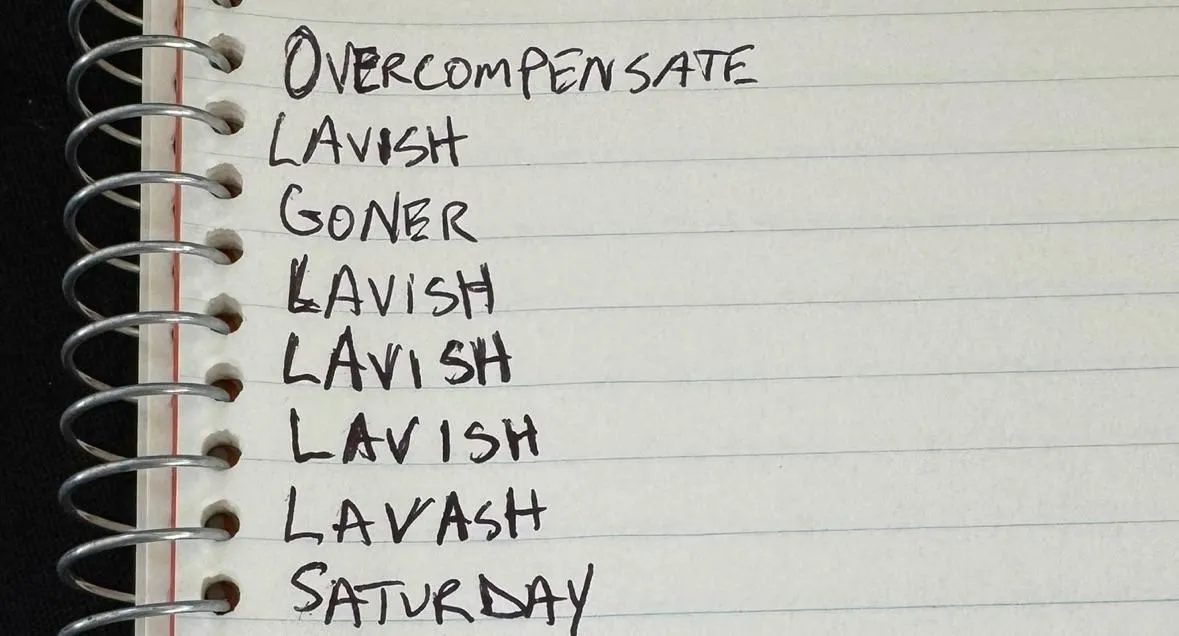 OVERCOMPENSATE
LAVISH
GONER
LAVISH
LAVISH
LAVISH
LAVASH
SATURDAY